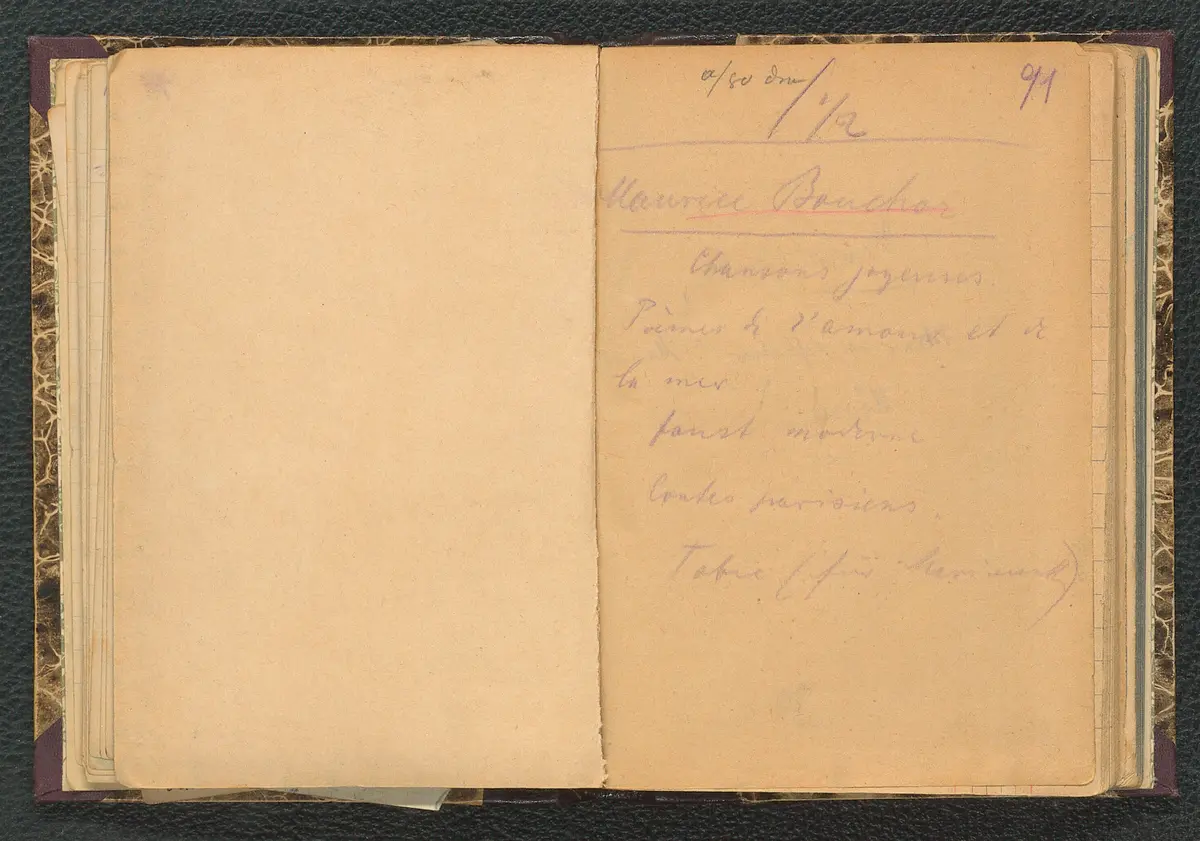 91
1/2
Maurice Bouchor
Chansons joyeuses
Poèmes de l'amour et de
la mer
faust moderne
Contes parisiens
Tobie (für